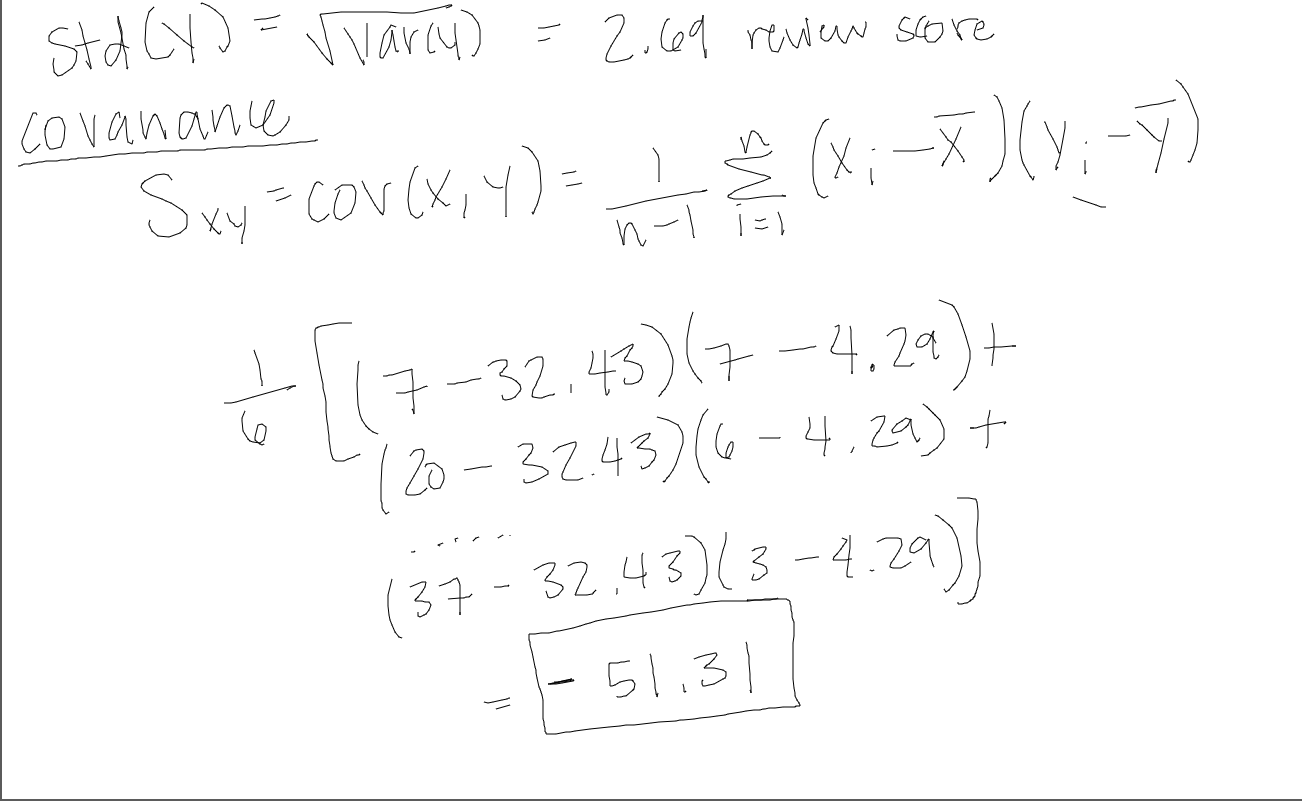 Std(Y) = √Var(Y) = 2.69 review score
covariance
Sxy = cov(X, Y) = 1/(n-1) Σ_{i=1}^{n} (xᵢ - x̄)(yᵢ - ȳ)
1/6 [(7 - 32.43)(7 - 4.29) +
(20 - 32.43)(6 - 4.29) +
......
(37 - 32.43)(3 - 4.29)]
= - 51.31